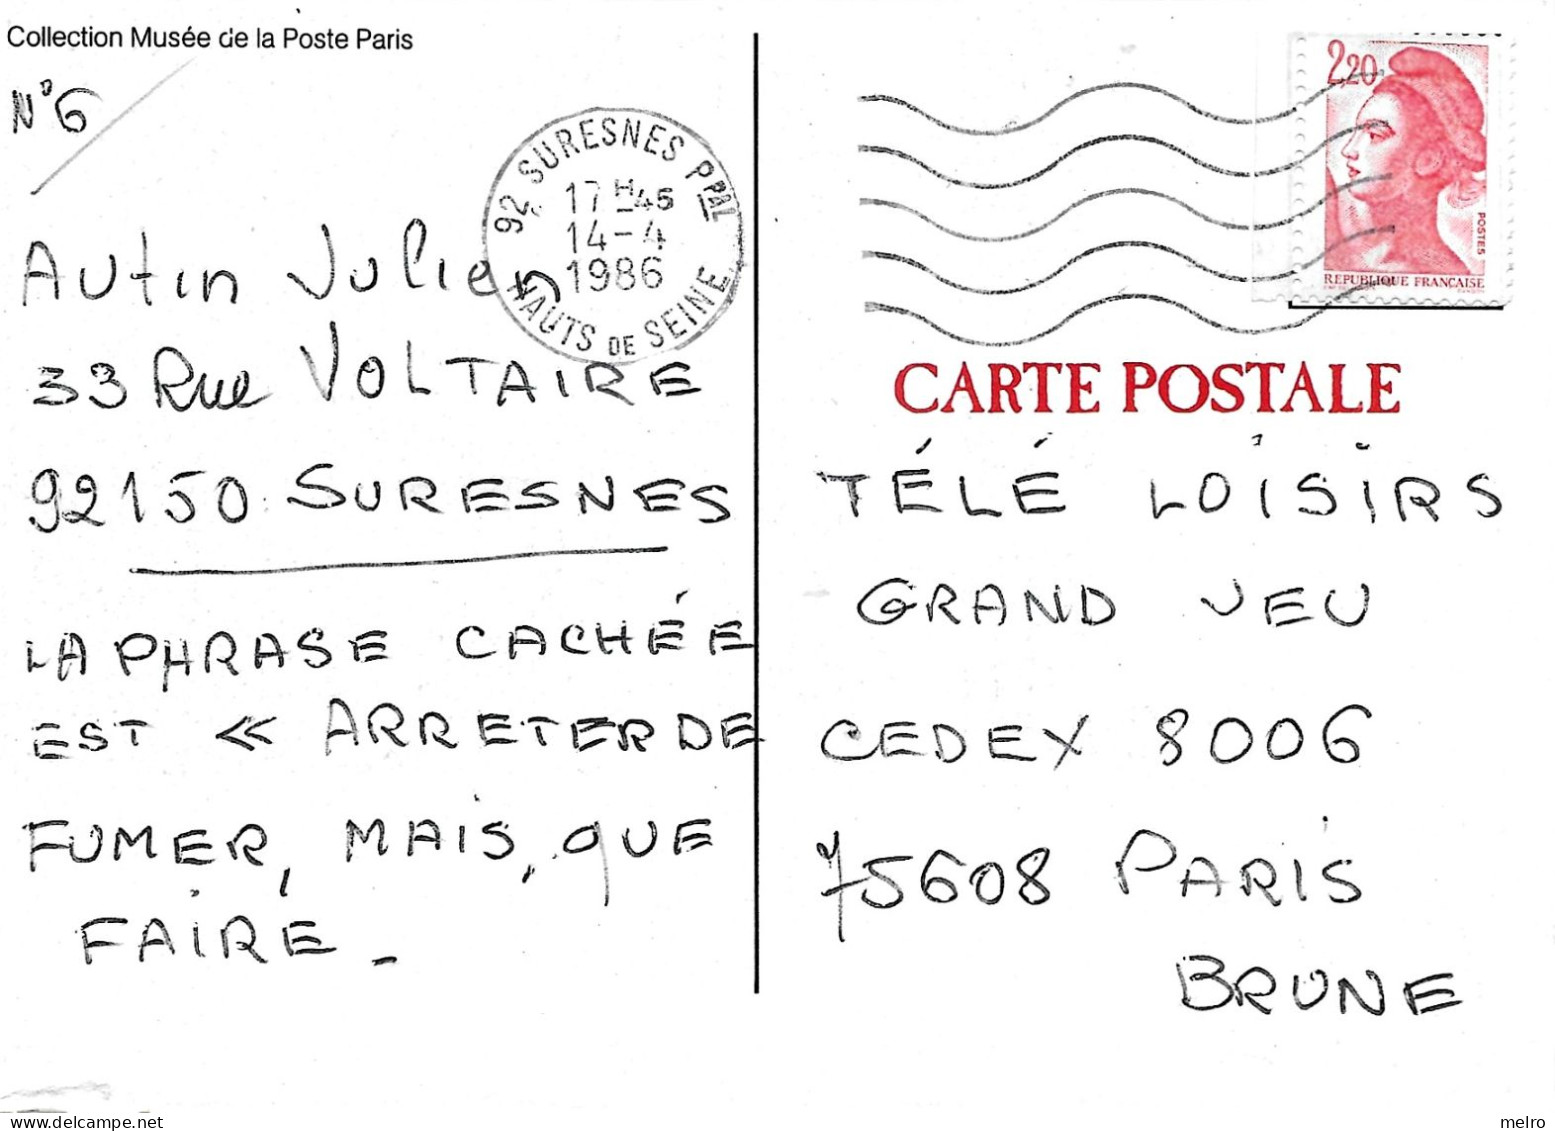 Collection Musée de la Poste Paris
N°6
Autin Julien
33 Rue VOLTAIRE
92150 SURESNES
LA PHRASE CACHÉE
EST « ARRETER DE
FUMER, MAIS, QUE
FAIRE -
92 SURESNES PPAL
17 H 45
14-4
1986
HAUTS DE SEINE
2,20
POSTES
REPUBLIQUE FRANÇAISE
CARTE POSTALE
TÉLÉ LOISIRS
GRAND JEU
CEDEX 8006
75608 PARIS
BRUNE
delcampe.net
melro